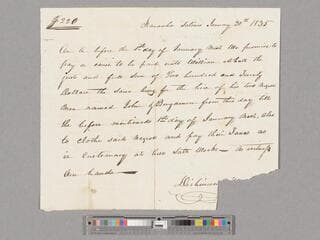 $220 January 20th 1835
On or before the 1st day of January next We promise to
pay or cause to be paid unto William the
just and full Sum of Two hundred and Twenty
Dollars the same being for the hire of his two negro
Men named John & Benjamin from this day till
the before mentioned 1st day of January next, also
to clothe said Negroes and pay their Taxes as
is Customary at Salt Works — As witness
Our hands —
Dickinson